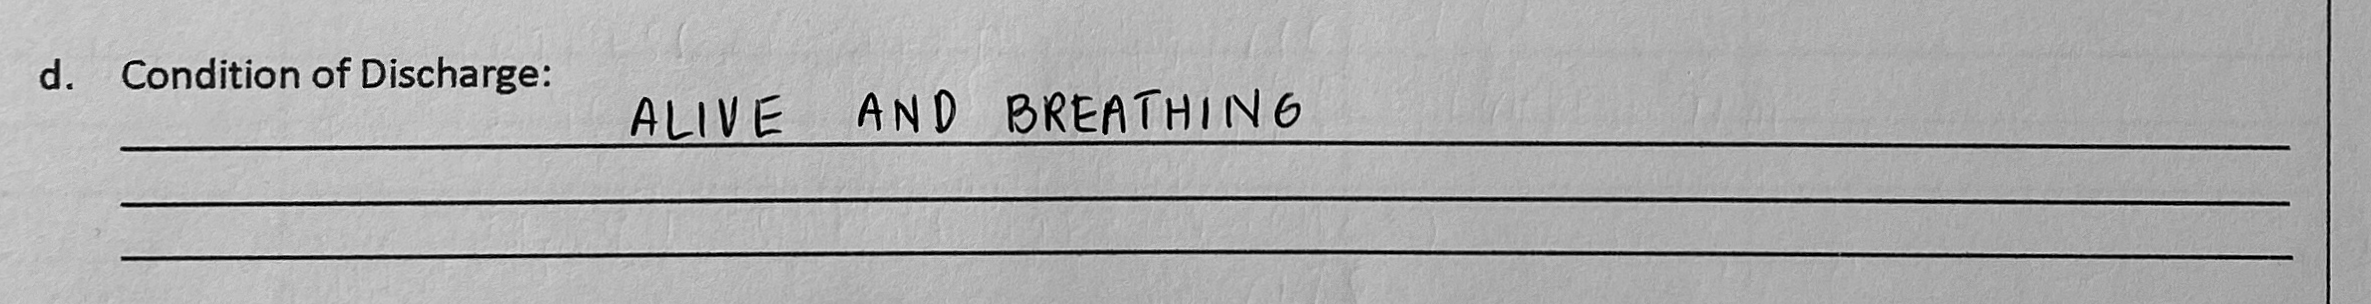 d. Condition of Discharge:
ALIVE AND BREATHING